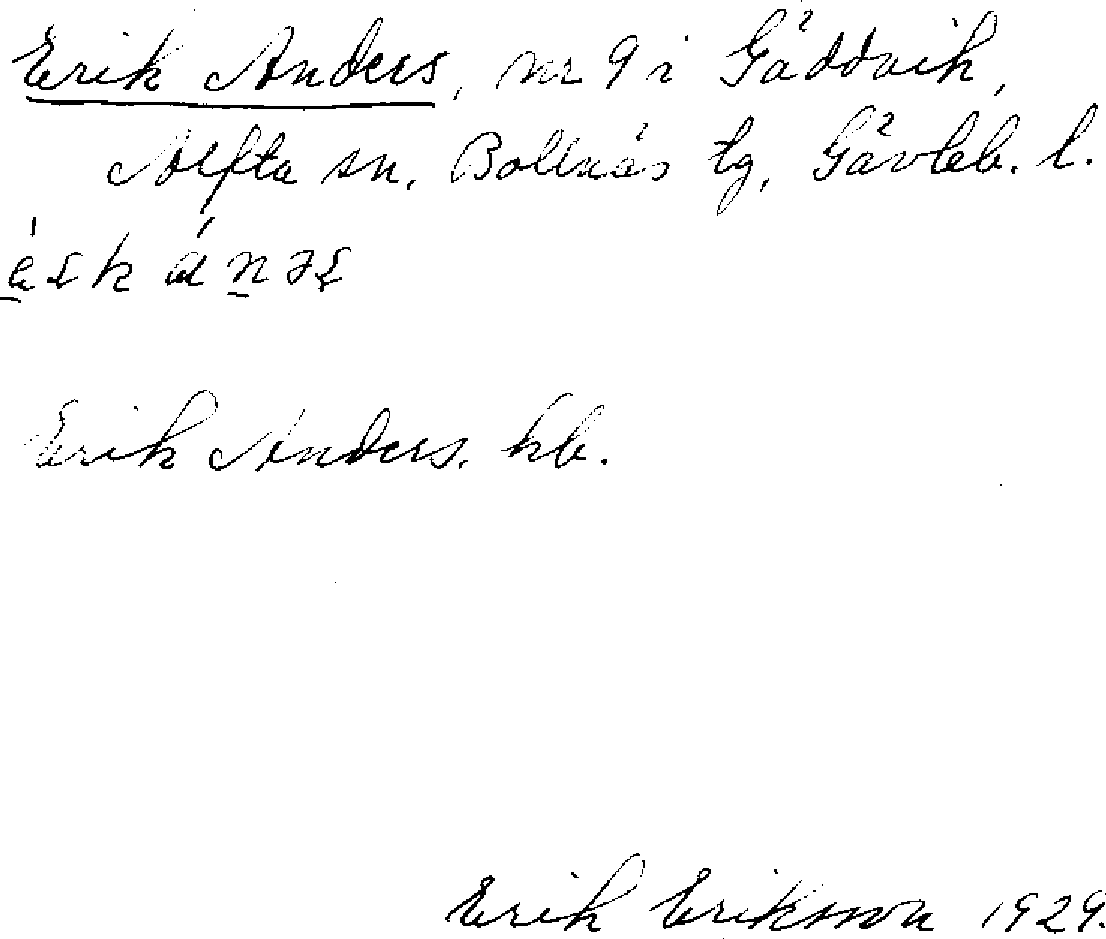 Erik Anders, nr 9 i Gäddvik,
Alfta sn, Bollnäs tg, Gävleb. l.
Erik Anders. hb.
Erik Eriksson 1929.